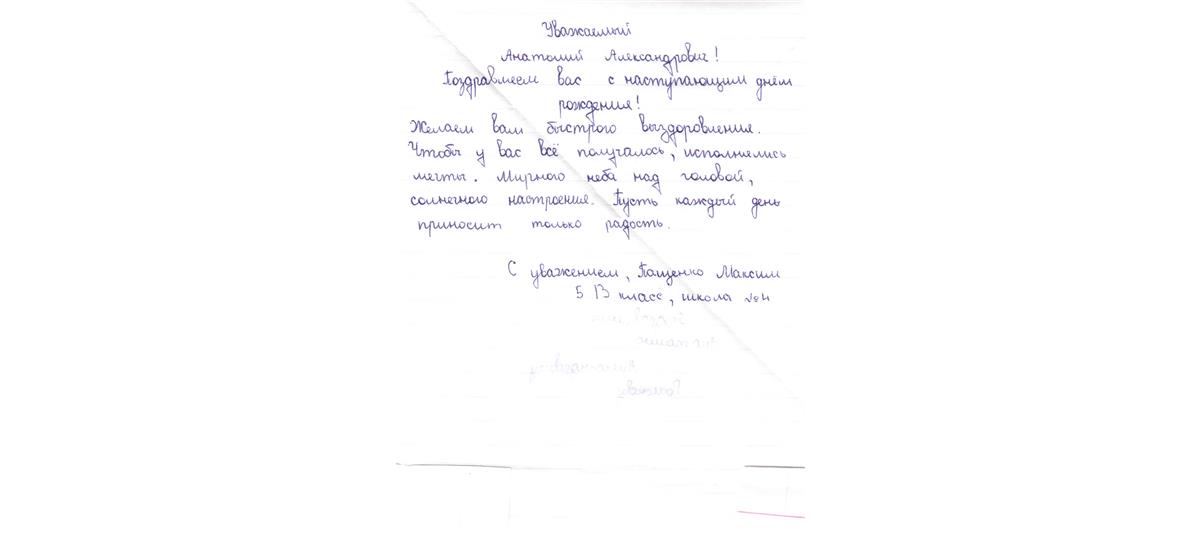 Уважаемый
Анатолий Александрович!
Поздравляем вас с наступающим днём
рождения!
Желаем вам быстрого выздоровления.
Чтобы у вас всё получалось, исполнялись
мечты. Мирного неба над головой,
солнечного настроения. Пусть каждый день
приносит только радость.
С уважением, Пащенко Максим
5 В класс, школа №4